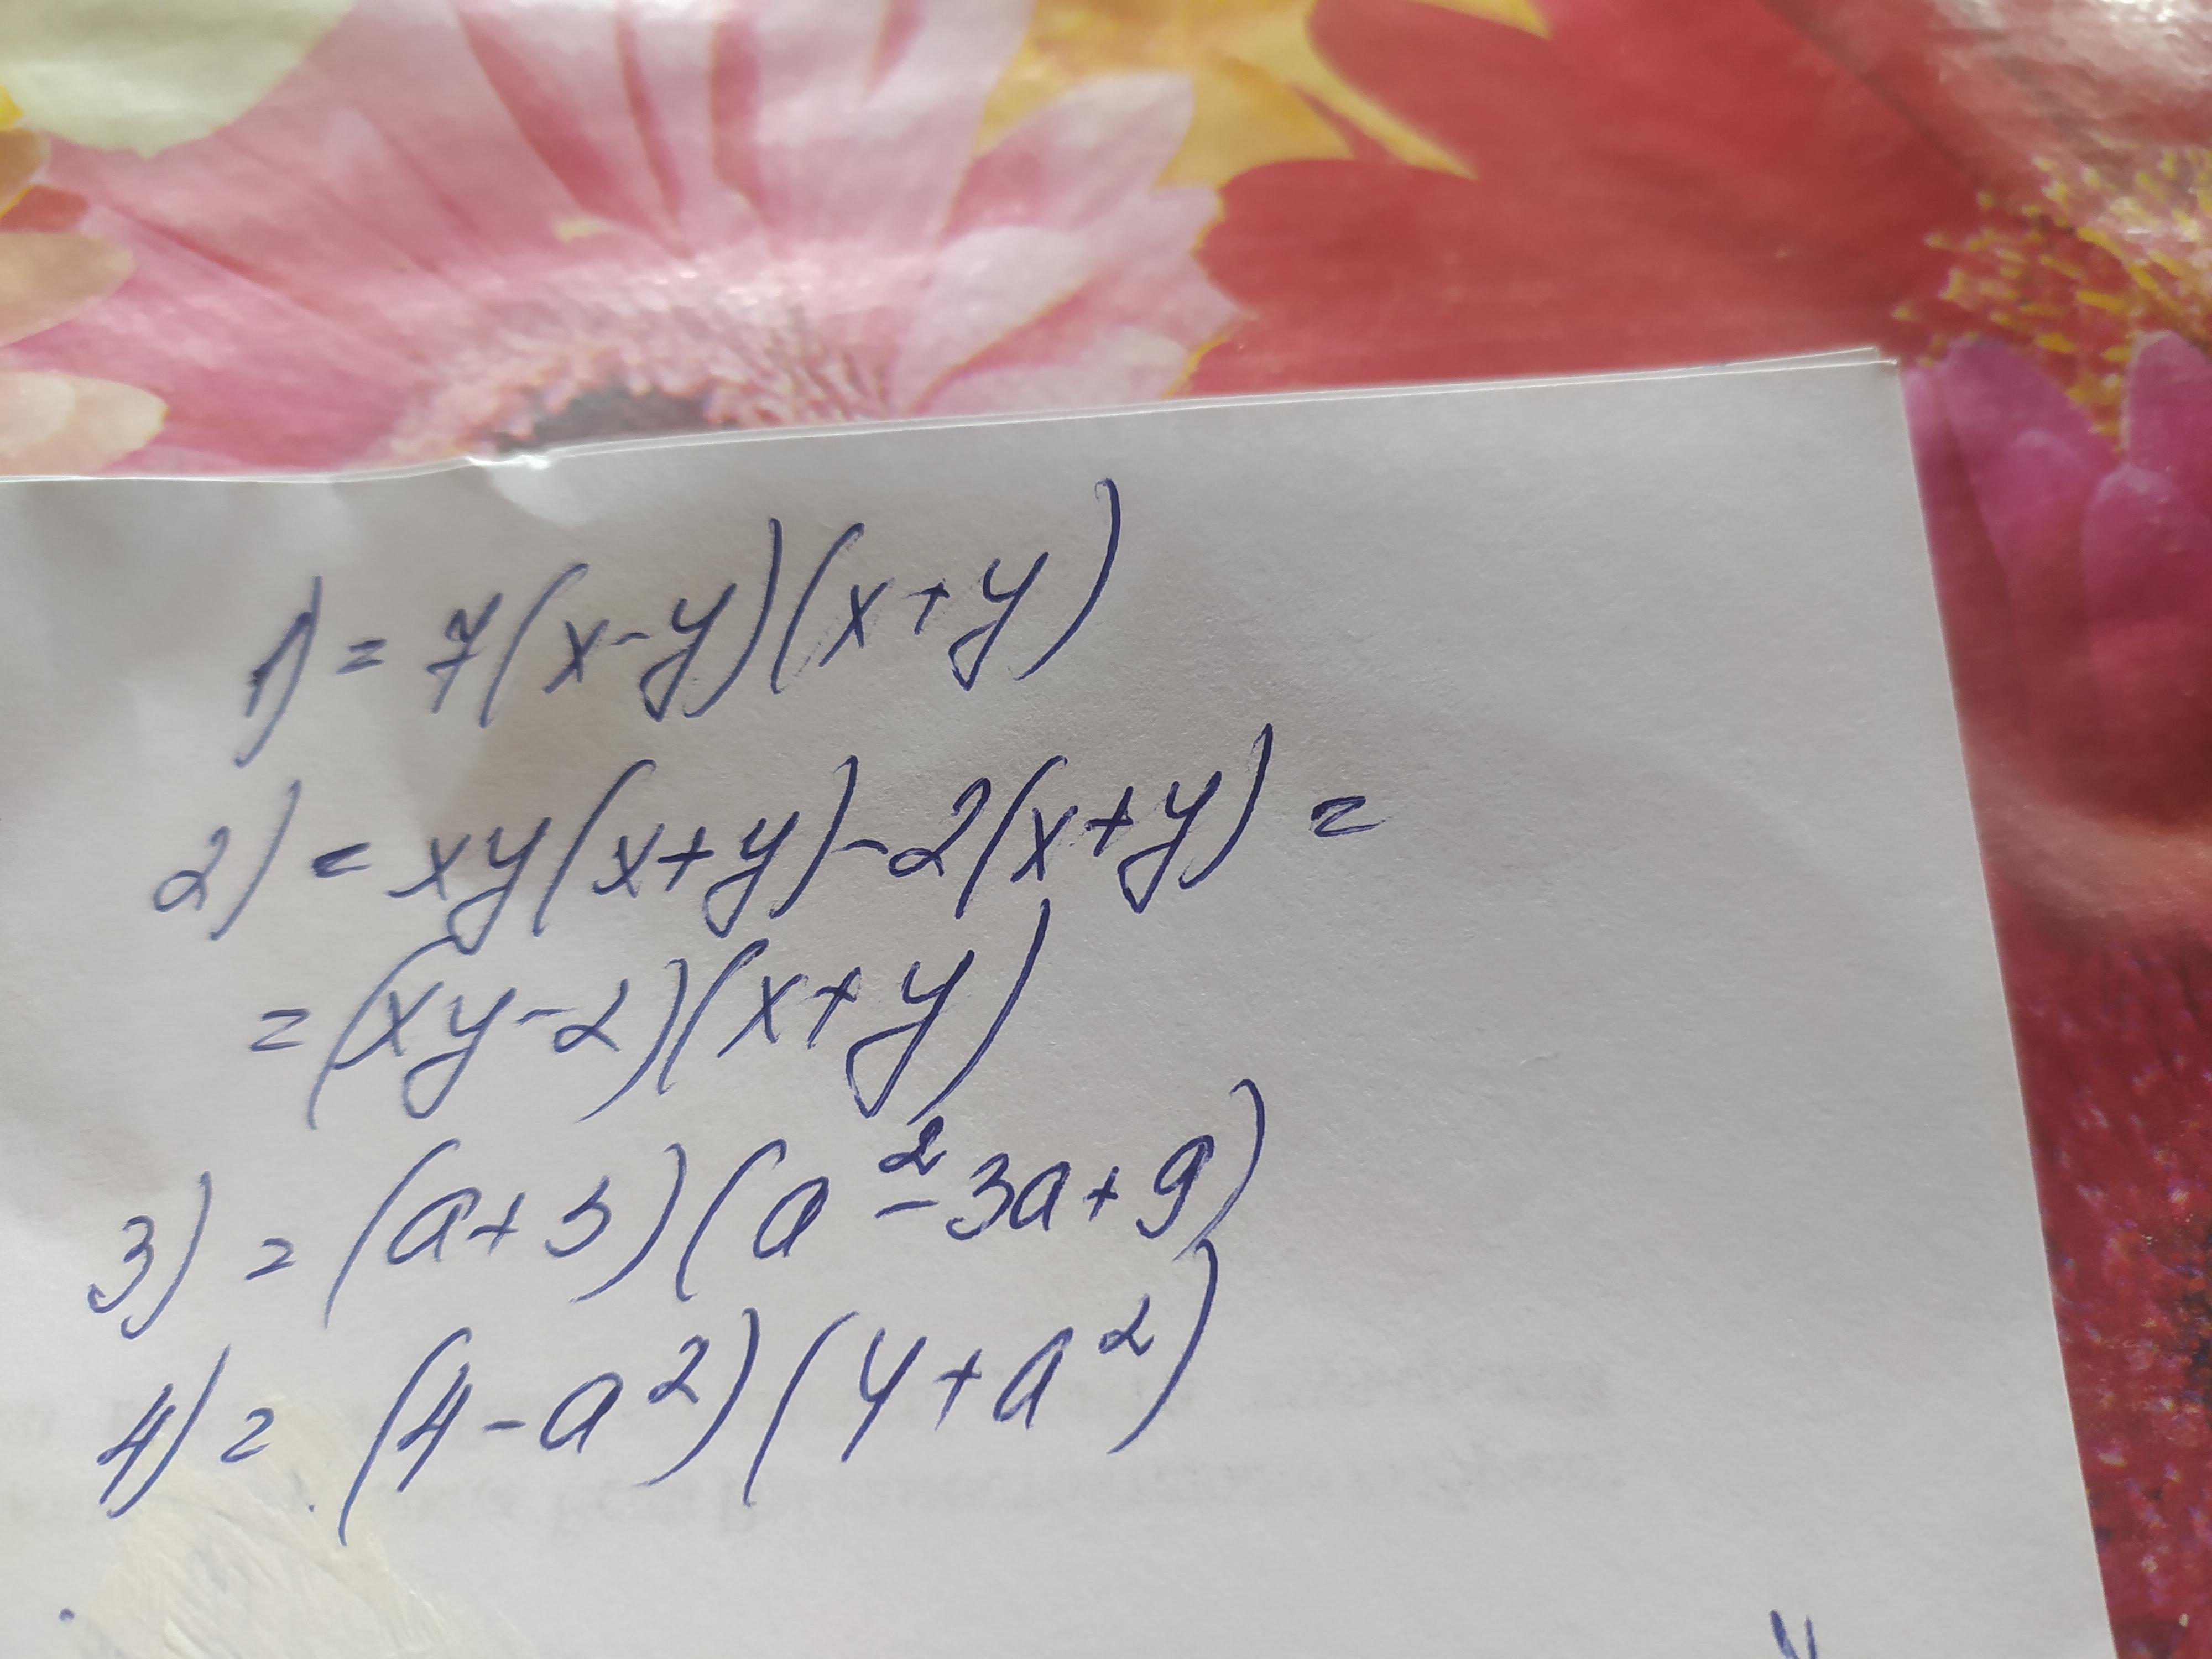 1) = 7(x-y)(x+y)
2) = xy(x+y)-2(x+y) =
= (xy-2)(x+y)
3) = (a+3)(a²-3a+9)
4) = (4-a²)(4+a²)